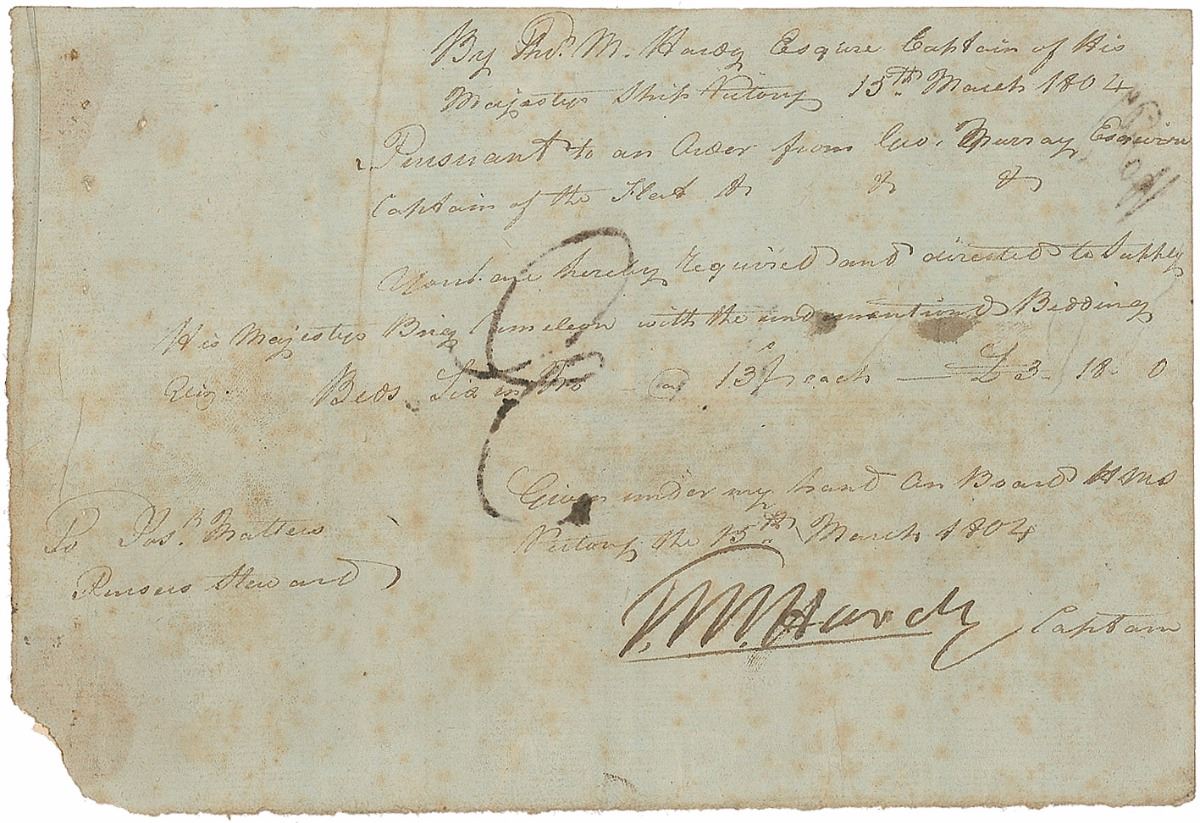 By Thos. M. Hardy Esqure Captain of His
Majestys Ship Victory 15th March 1804
Pursuant to an Order from Geo. Murray Esquire
Captain of the Fleet & & &
You are hereby required and directed to Supply
His Majestys Brig Cameleon with the undermentiond Bedding
Viz. Beds Six in No @ 13s/ each £3 - 18 - 0
Given under my hand On Board HMS
Victory the 15th March 1804
To Jos.h
Pursers Steward
T. M. Hardy Captain